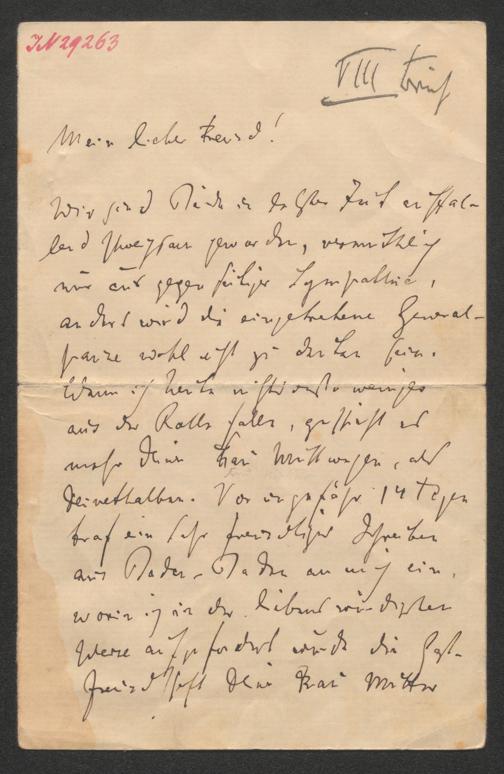 IN 29263
VIII
Mein lieber Freund!
Wir sind Beide in letzter Zeit auffal-
lend schweigsam geworden, vermuthlich
nur aus gegenseitiger Sympathie,
anders wird die eingetretene General-
pause wohl nicht zu deuten sein.
Wenn ich heute nichtsdestoweniger
aus der Rolle falle, geschieht es
mehr Deiner Frau Mutter wegen, als
Deinethalben. Vor ungefähr 14 Tagen
traf ein sehr freundliches Schreiben
aus Baden-Baden an mich ein,
worin ich in der liebenswürdigsten
Weise aufgefordert wurde die Gast-
freundschaft Deiner Frau Mutter